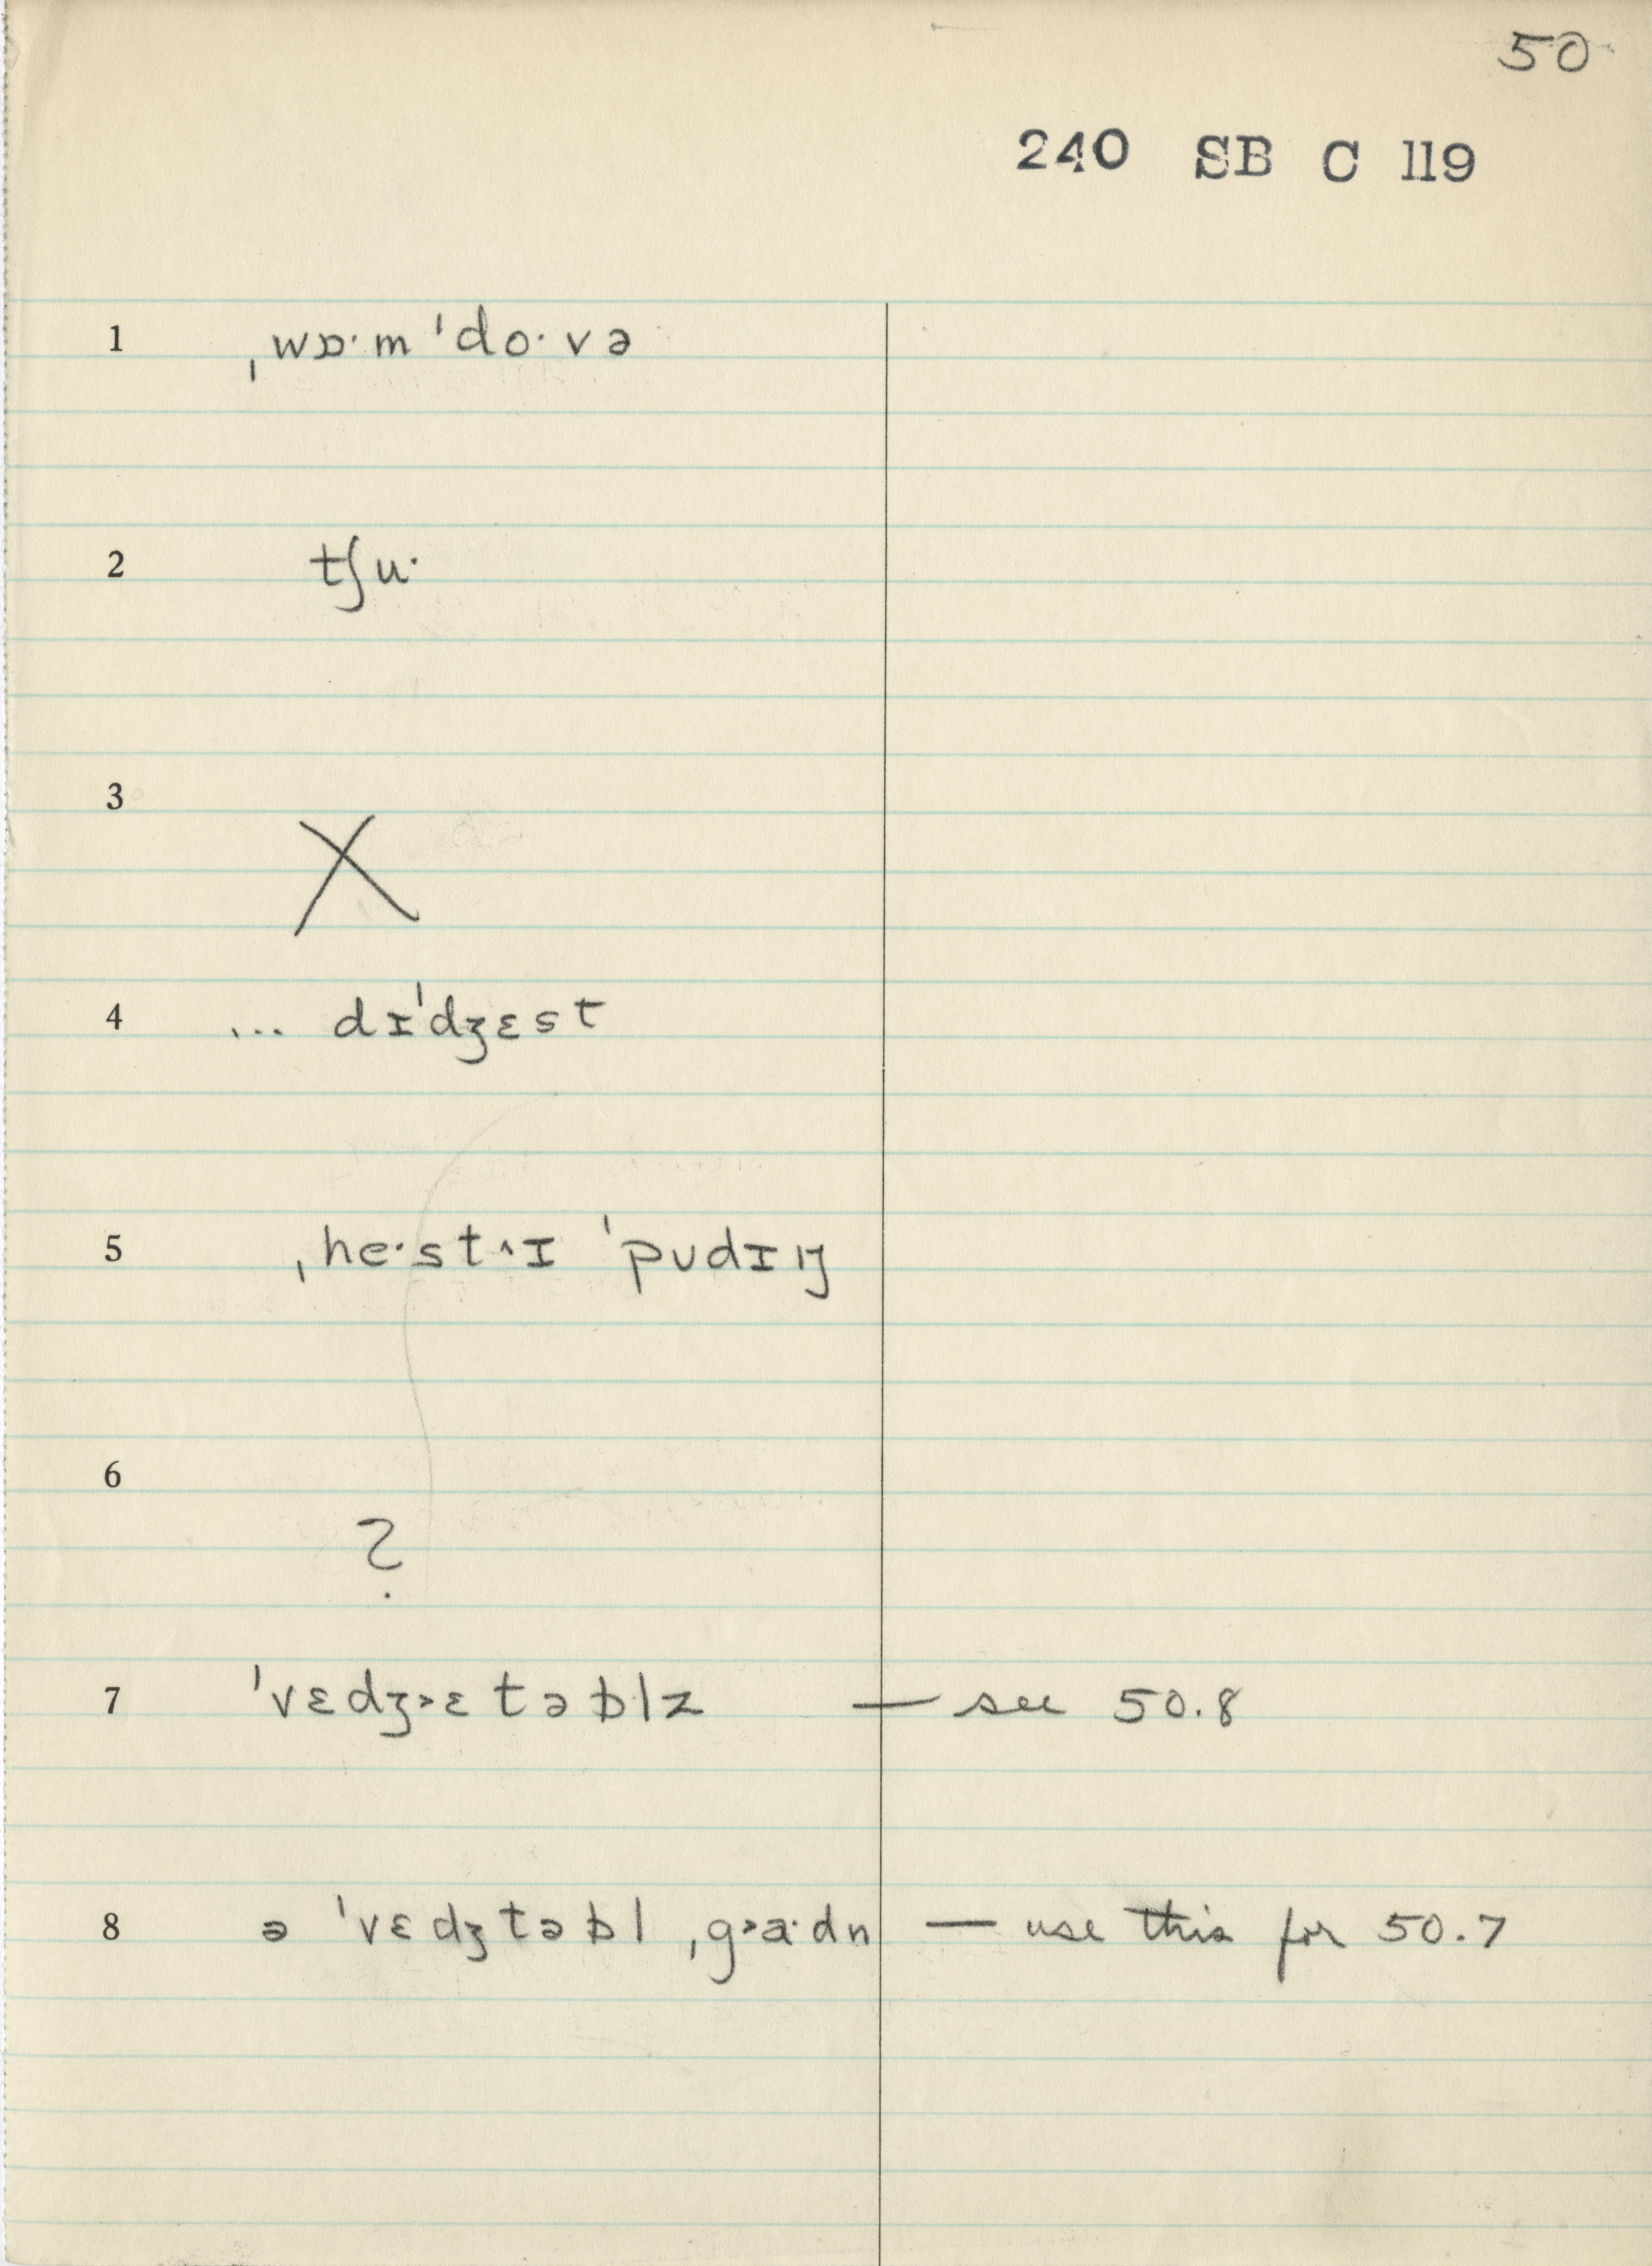 50
240 SB C 119
1 ˌwɒ·m ˈdo·və
2 tʃu·
3 X
4 ... dɪˈdʒɛst
5 ˌhe·st˄ɪ ˈpʊdɪŋ
6 ?
7 ˈvɛdʒ˃ɛtəb̵lz — see 50.8
8 ə ˈvɛdʒtəb̵l ˌg˃a·dn — use this for 50.7